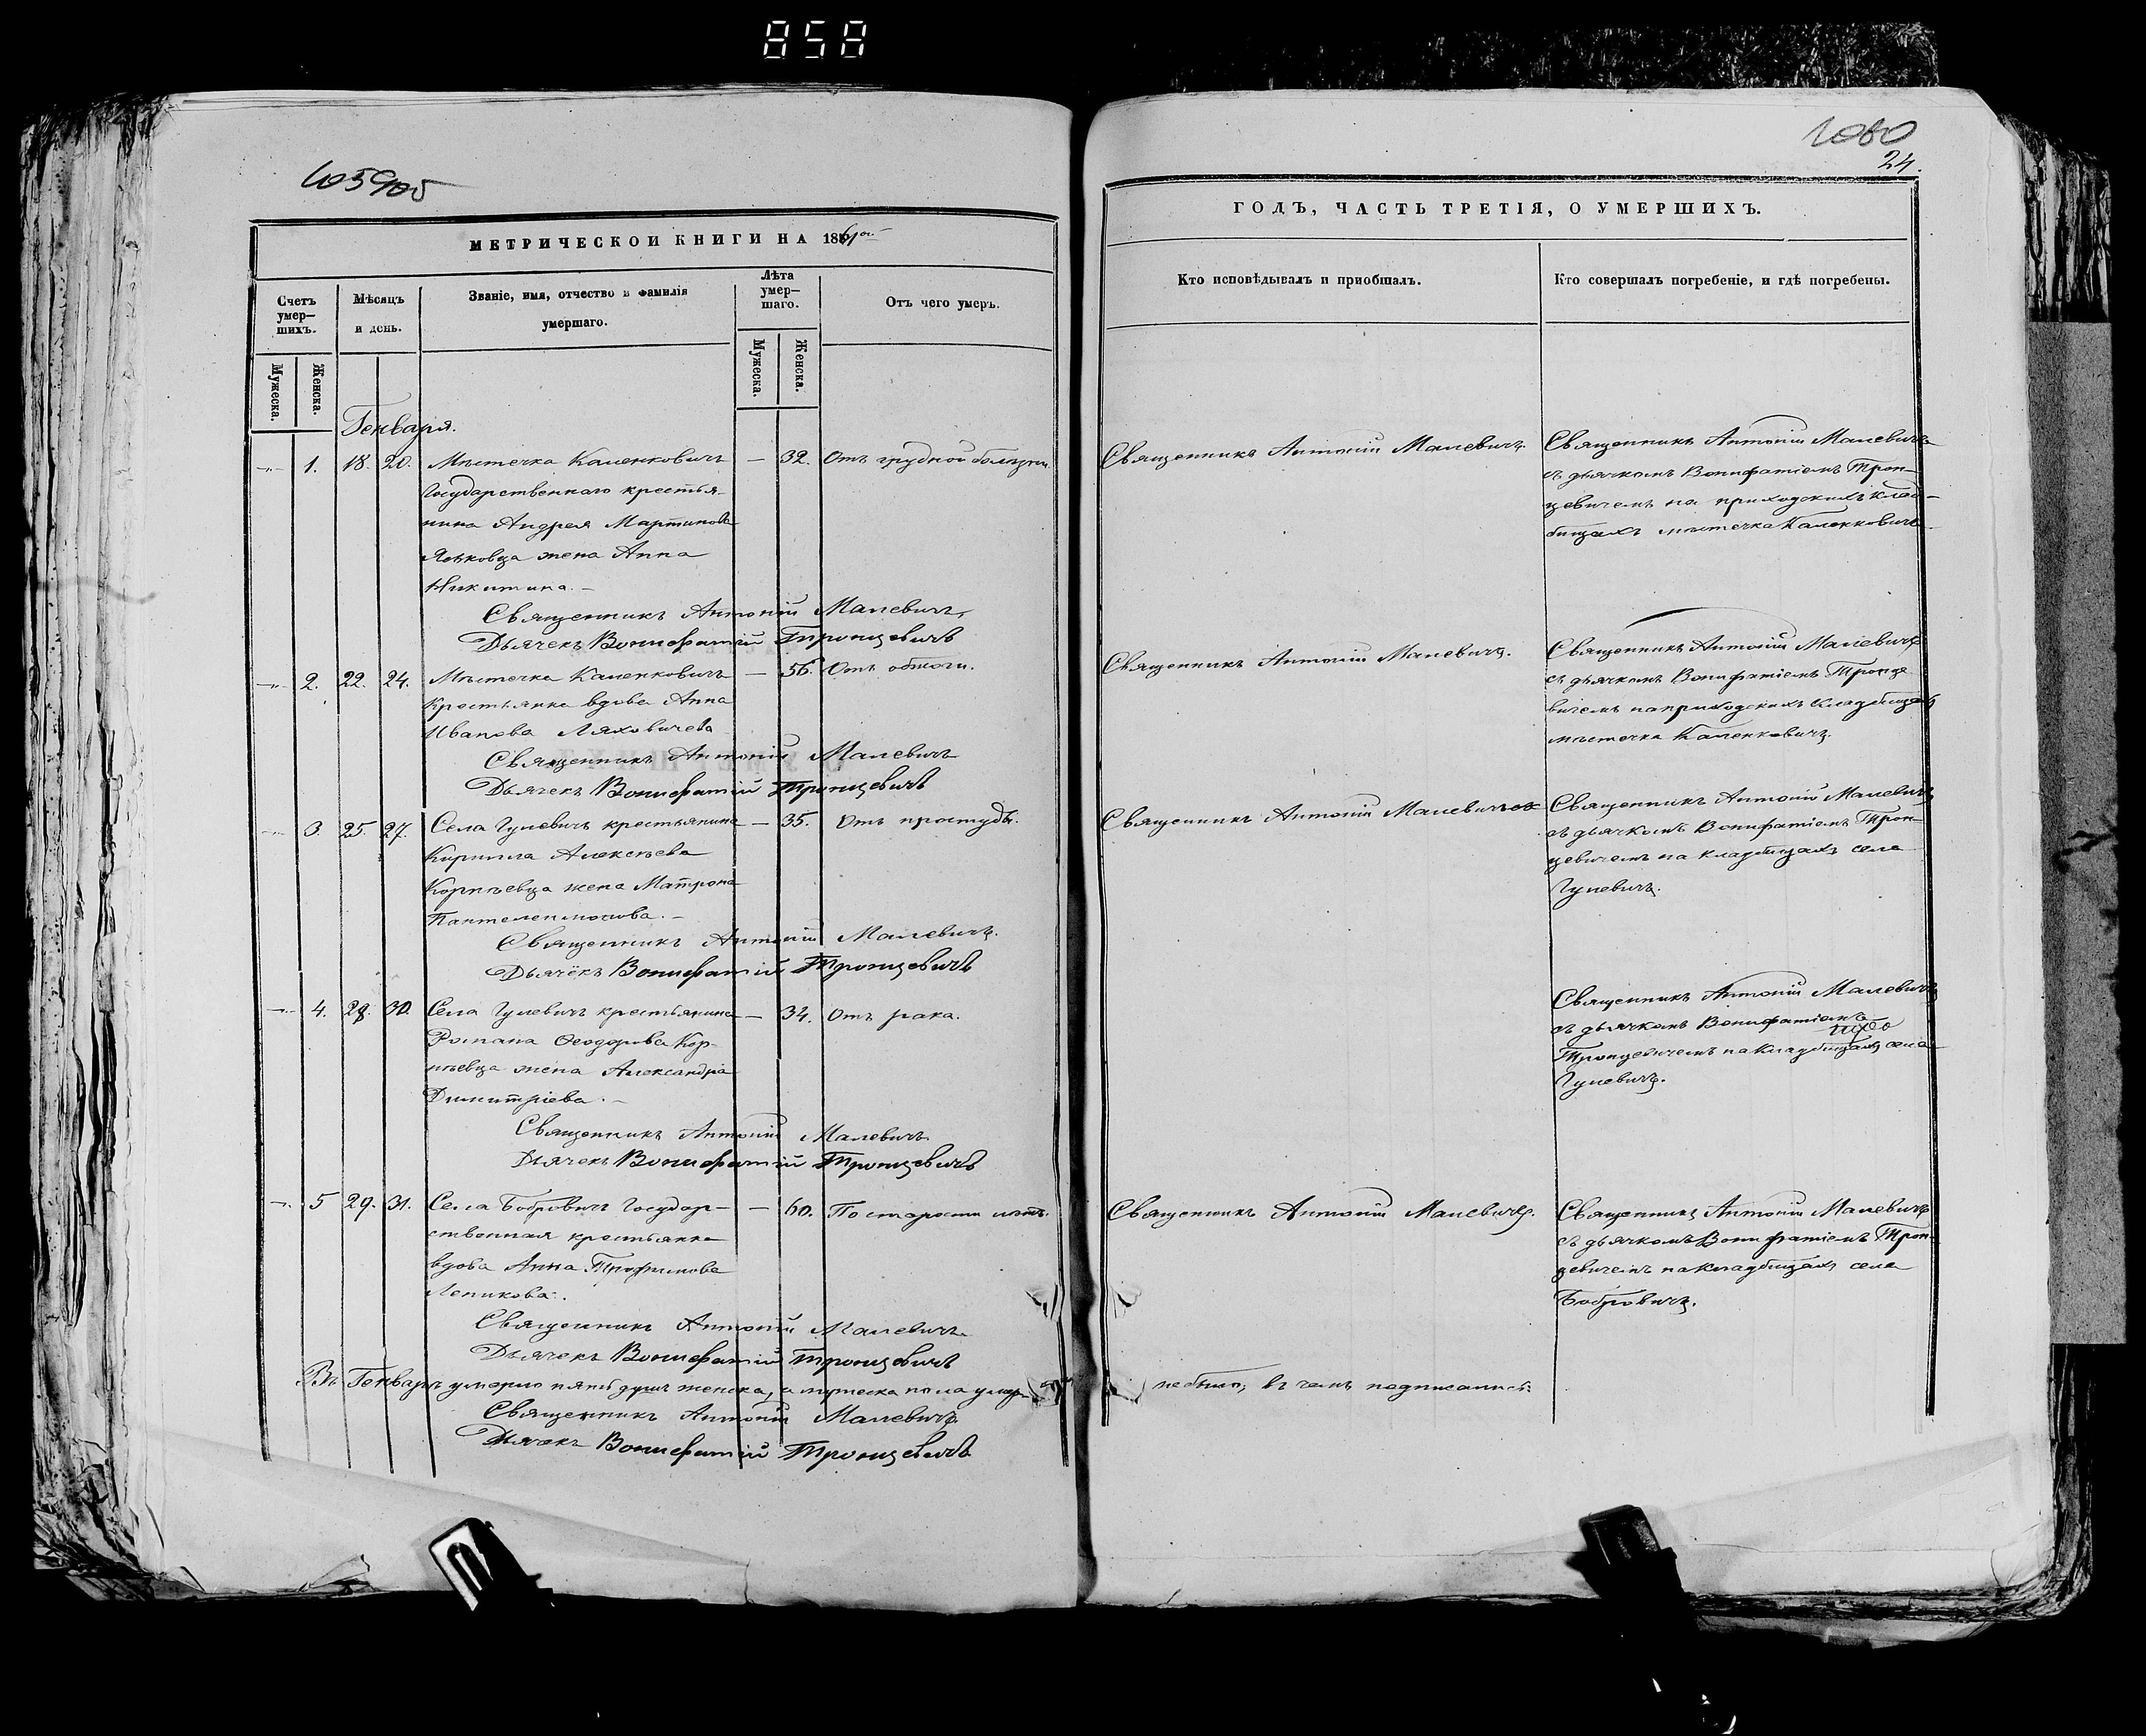 858
1080
24.
МЕТРИЧЕСКОЙ КНИГИ НА 1861ой
ГОДЪ, ЧАСТЬ ТРЕТІЯ, О УМЕРШИХЪ.
Счетъ умер—шихъ.
Мужеска.
Женска.
Мѣсяцъ и день.
Званіе, имя, отчество и фамилія
умершаго.
Лѣта умер—шаго.
Мужеска.
Женска.
Отъ чего умеръ.
Кто исповѣдывалъ и приобщалъ.
Кто совершалъ погребеніе, и гдѣ погребены.
Генваря.
1. 18. 20. Мѣстечка Каленковичъ — 32. Отъ грудной болѣзни.
Государственнаго крестья-
нина Андрея Мартинова
жена Анна
Никитина. —
Священникъ Антоній Малевичъ
Дьячекъ Вонифатій Тронцевичъ
Священникъ Антоній Малевичъ.
Священникъ Антоній Малевичъ
съ дьячкомъ Вонифатіемъ Трон-
цевичемъ на приходскихъ клад-
бищахъ мѣстечка Каленковичъ
2. 22. 24. Мѣстечка Каленковичъ — 56. Отъ обжоги.
Крестьянка вдова Анна
Иванова Ляховичева
Священникъ Антоній Малевичъ
Дьячекъ Вонифатій Тронцевичъ
Священникъ Антоній Малевичъ.
Священникъ Антоній Малевичъ
съ дьячкомъ Вонифатіемъ Тронце
вичемъ на приходскихъ кладбищахъ
мѣстечка Каленковичъ.
3. 25. 27. Села Гулевичъ крестьянина — 35. Отъ простуды.
Кирилла Алексѣева
Корнѣевца жена Матрона
Пантелеимонова. —
Священникъ Антоній Малевичъ.
Дьячекъ Вонифатій Тронцевичъ
Священникъ Антоній Малевичъ
Священникъ Антоній Малевичъ
съ дьячкомъ Вонифатіемъ Трон-
цевичемъ на кладбищахъ села
Гулевичъ.
4. 28. 30. Села Гулевичъ крестьянина — 34. Отъ рака.
Романа Ѳеодорова Кор-
нѣевца жена Александра
Димитріева. —
Священникъ Антоній Малевичъ
Дьячекъ Вонифатій Тронцевичъ
Священникъ Антоній Малевичъ
съ дьячкомъ Вонифатіемъ
Тронцевичемъ на кладбищахъ села
Гулевичъ.
5 29. 31. Села Бобровичъ Государ- — 60. По старости лѣтъ.
ственная крестьянка
вдова Анна Трофимова
Леникова.
Священникъ Антоній Малевичъ
Дьячекъ Вонифатій Тронцевичъ
Священникъ Антоній Малевичъ.
Священникъ Антоній Малевичъ
съ дьячкомъ Вонифатіемъ Трон-
цевичемъ на кладбищахъ села
Бобровичъ.
Въ Генварѣ умерло пять душъ женска, а мужеска пола не было, въ чемъ подписались:
Священникъ Антоній Малевичъ
Дьячекъ Вонифатій Тронцевичъ